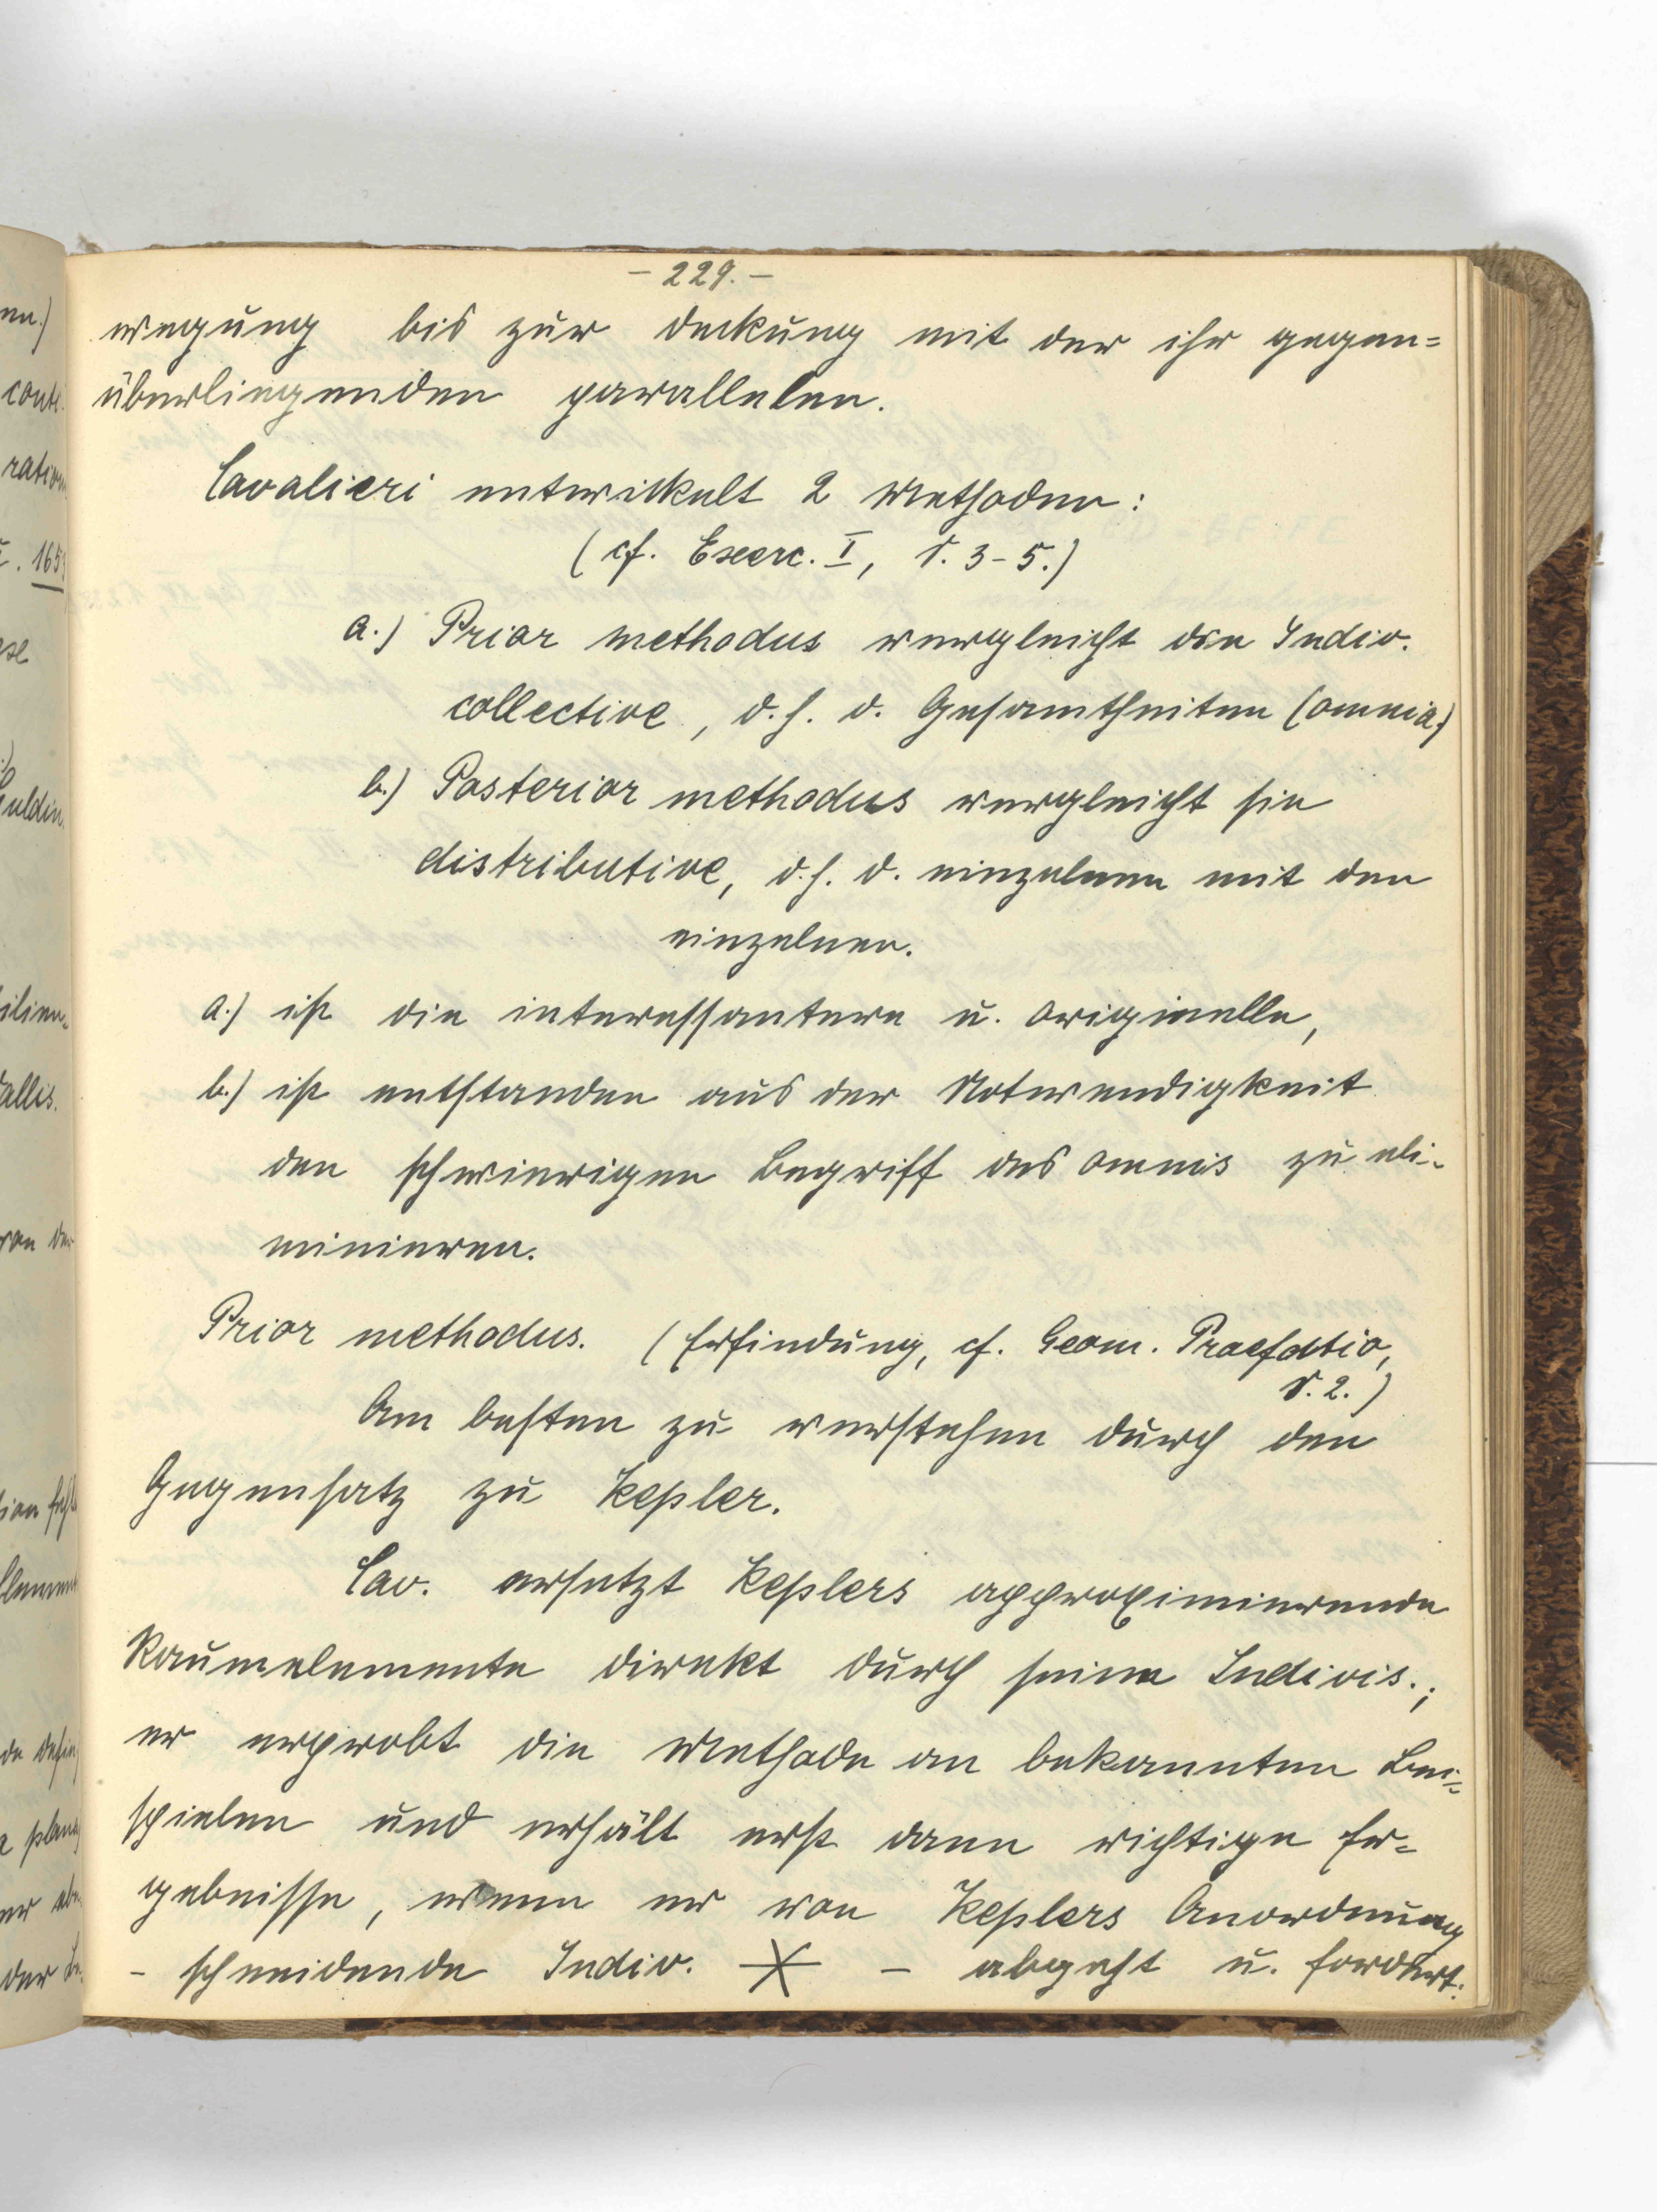 - 229. -
wegung bis zur deckung mit der ihr gegen=
überliegenden parallelen.
Cavalieri entwickelt 2 Methoden:
(cf. Exerc. I, S. 3-5.)
a.) Prior methodus vergleicht die Indiv.
collective, d.h. d. Gesamtheiten (omnia)
b.) Posterior methodus vergleicht sie
distributive, d.h. d. einzelnen mit den
einzelnen.
a.) ist die interessantere u. originelle,
b.) ist entstanden aus der Notwendigkeit
den schwierigen Begriff des omnis zu eli-
minieren.
Prior methodus. (Erfindung, cf. Geom. Praefatio,
S. 2.)
Am besten zu verstehen durch den
Gegensatz zu Kepler.
Cav. ersetzt Keplers approximierende
Raumelemente direkt durch seine Indivis.;
er erprobt die Methode an bekannten Bei=
spielen und erhält erst dann richtige Er=
gebnisse, wenn er von Keplers Anordnung
- schneidende Indiv. - abgeht u. fordert:
nn.)
conti
ration
1653
ese
Guldin.
ilien-
allis.
von der
de defin
plana
der Be.